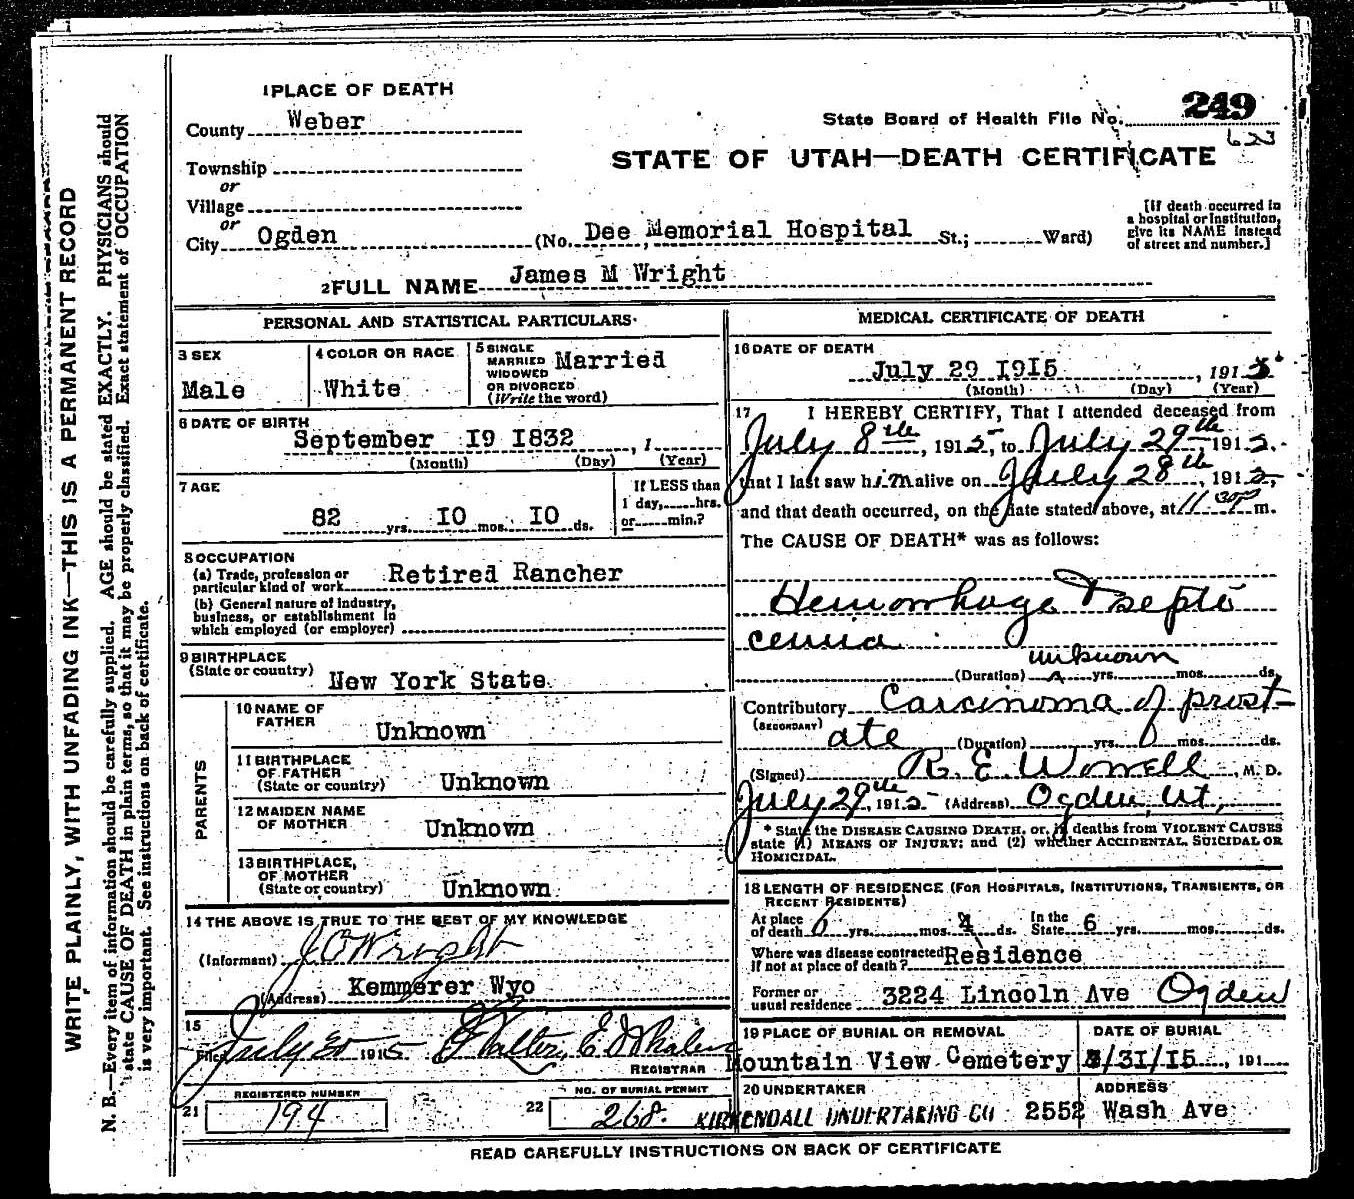 249
623
State Board of Health File No.
1 PLACE OF DEATH
County Weber
STATE OF UTAH—DEATH CERTIFICATE
Township
or
Village
or
City Ogden (No. Dee Memorial Hospital St.; Ward)
[If death occurred in
a hospital or institution,
give its NAME instead
of street and number.]
2 FULL NAME James M Wright
PERSONAL AND STATISTICAL PARTICULARS
3 SEX
Male
4 COLOR OR RACE
White
5 SINGLE
MARRIED
WIDOWED
OR DIVORCED
(Write the word)
Married
6 DATE OF BIRTH
September I9 I832, 1
(Month) (Day) (Year)
7 AGE
82 yrs. IO mos. IO ds.
If LESS than
1 day, hrs.
or min.?
8 OCCUPATION
(a) Trade, profession or
particular kind of work Retired Rancher
(b) General nature of industry,
business, or establishment in
which employed (or employer)
9 BIRTHPLACE
(State or country) New York State
PARENTS
10 NAME OF
FATHER
Unknown
11 BIRTHPLACE
OF FATHER
(State or country) Unknown
12 MAIDEN NAME
OF MOTHER Unknown
13 BIRTHPLACE,
OF MOTHER
(State or country) Unknown
14 THE ABOVE IS TRUE TO THE BEST OF MY KNOWLEDGE
(Informant) Wright
(Address) Kemmerer Wyo
15
Filed July 30 1915 Walter E Whalen
REGISTRAR
21 REGISTERED NUMBER
194
22 NO. OF BURIAL PERMIT
268
MEDICAL CERTIFICATE OF DEATH
16 DATE OF DEATH
July 29 I9I5, 1915
(Month) (Day) (Year)
17 I HEREBY CERTIFY, That I attended deceased from
July 8th, 1915, to July 29th 1915
that I last saw him alive on July 28th, 1915,
and that death occurred, on the date stated above, at 11 30 P m.
The CAUSE OF DEATH* was as follows:
Hemorrhage & septi
cemia
unknown
(Duration) yrs. mos. ds.
Contributory Carcinoma of prost-
(SECONDARY)
ate (Duration) yrs. mos. ds.
(Signed) R. E. Worrell, M. D.
July 29th, 1915 (Address) Ogden, Ut,
* State the DISEASE CAUSING DEATH, or, if deaths from VIOLENT CAUSES
state (1) MEANS OF INJURY; and (2) whether ACCIDENTAL, SUICIDAL OR
HOMICIDAL.
18 LENGTH OF RESIDENCE (FOR HOSPITALS, INSTITUTIONS, TRANSIENTS, OR
RECENT RESIDENTS)
At place
of death yrs. mos. 4 ds.
In the
State 6 yrs. mos. ds.
Where was disease contracted
If not at place of death? Residence
Former or
usual residence 3224 Lincoln Ave Ogden
19 PLACE OF BURIAL OR REMOVAL
Mountain View Cemetery
DATE OF BURIAL
/31/15, 191
20 UNDERTAKER
KIRKENDALL UNDERTAKING CO
ADDRESS
2552 Wash Ave
READ CAREFULLY INSTRUCTIONS ON BACK OF CERTIFICATE
WRITE PLAINLY, WITH UNFADING INK—THIS IS A PERMANENT RECORD
N. B.—Every item of information should be carefully supplied. AGE should be stated EXACTLY. PHYSICIANS should
state CAUSE OF DEATH in plain terms, so that it may be properly classified. Exact statement of OCCUPATION
is very important. See instructions on back of certificate.